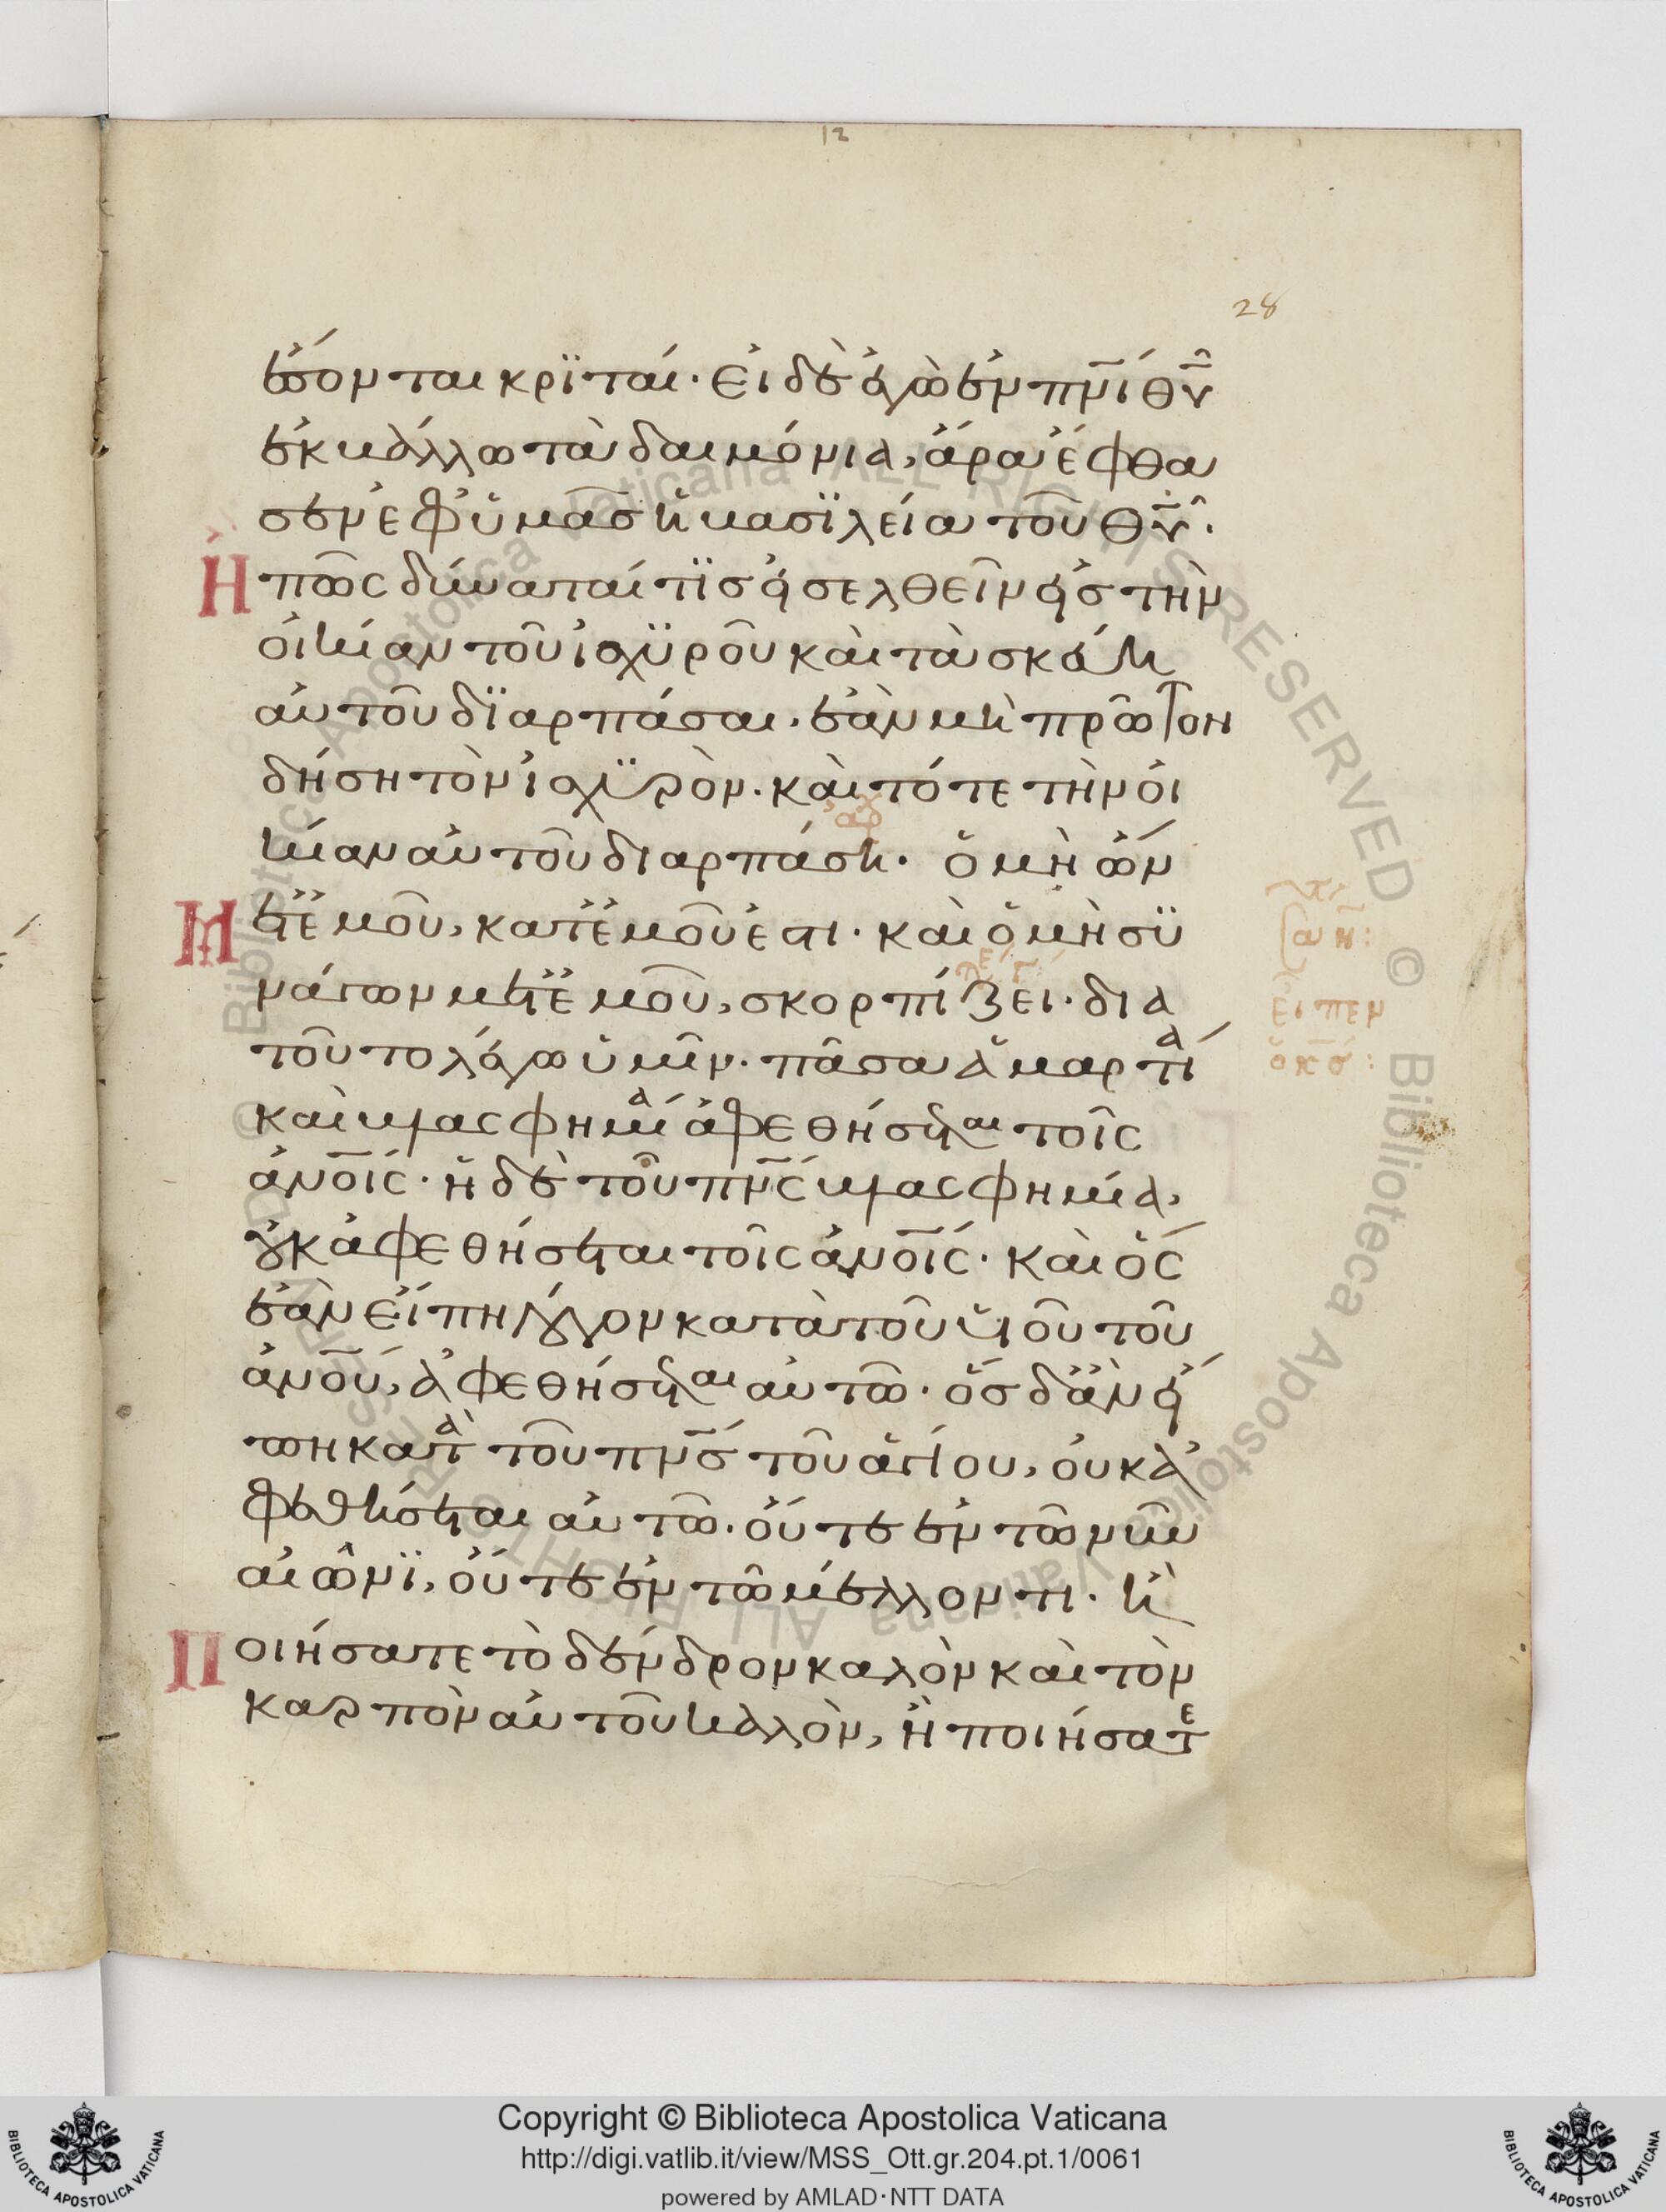 12
28
ἔσονται κριταί· εἰ δὲ ἐγὼ ἐν πν̅ι θυ̅
ἐκβάλλω τὰ δαιμόνια, ἄρα ἔφθα
σεν ἐφ ὑμᾶσ ἡ βασϊλεία τοῦ θυ̅·
Ἢ πῶς δύναταί τϊσ εἰσελθεῖν εἰσ τὴν
οἰκίαν τοῦ ἰσχϋροῦ καὶ τὰ σκεύη
αὐτοῦ δϊαρπάσαι· ἐὰν μὴ πρῶτον
δήση τὸν ἰσχϋρὸν· καὶ τότε τὴν οἰ
κίαν αὐτοῦ διαρπάση· ὁ μὴ ὢν
Μετ ἐμοῦ, κατ ἐμοῦ ἐστι· καὶ ὁ μὴ συ
νάγων μετ ἐμοῦ, σκορπίζει· δια
τοῦτο λέγω ὑμῖν· πᾶσα ἁμαρτία
καὶ βλασφημία ἀφεθήσεται τοῖς
ἀνοῖς· ἡ δὲ τοῦ πν̅ς βλασφημία,
οὐκ ἀφεθήσεται τοῖς ἀνοῖς· καὶ ὃς
ἐὰν εἴπη λόγον κατὰ τοῦ υἱοῦ τοῦ
ἀνοῦ, ἀφεθήσεται αὐτῶ· ὃσ δ ἂν εἴ
πη κατὰ τοῦ πν̅σ τοῦ ἁγίου, οὐκ ἀ
φεθήσεται αὐτῶ· οὔτε ἐν τῶ νῦν
αἰῶνϊ, οὔτε ἐν τῶ μέλλοντι· ἢ
Ποιήσατε τὸ δένδρον καλὸν καὶ τὸν
καρπὸν αὐτοῦ καλὸν, ἢ ποιήσατε
εἶπεν
ὁ κσ̅:
Copyright © Biblioteca Apostolica Vaticana
http://digi.vatlib.it/view/MSS_Ott.gr.204.pt.1/0061
powered by AMLAD·NTT DATA
BIBLIOTECA APOSTOLICA VATICANA
BIBLIOTECA APOSTOLICA VATICANA